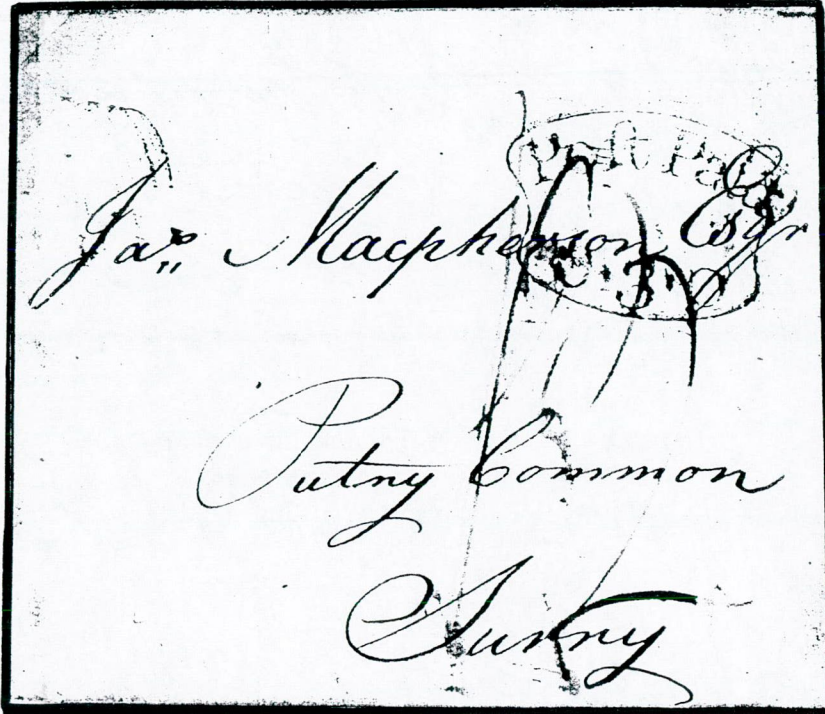 Post Paid
Jas Macpherson Esqr
Putny Common
Surry